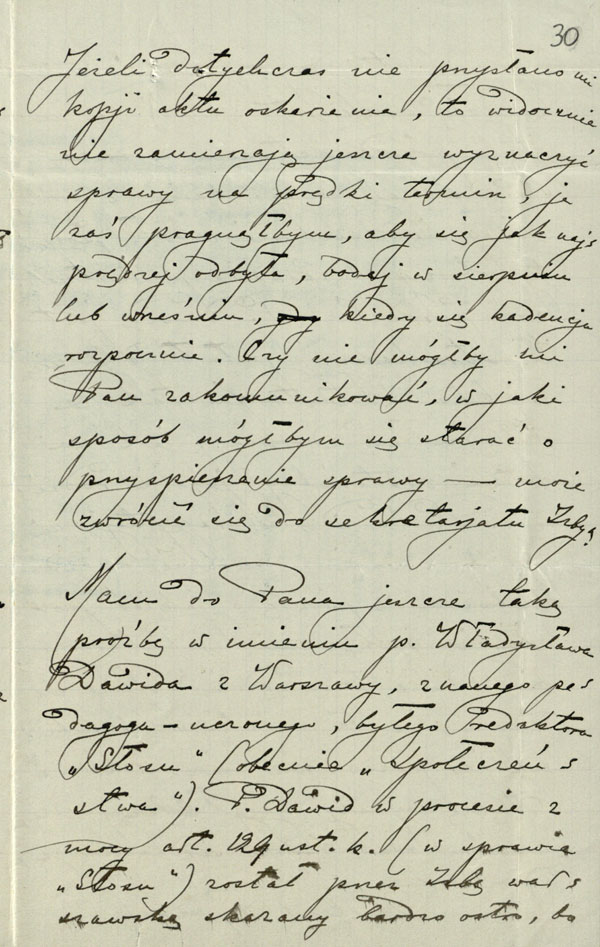 30
Jeżeli dotychczas nie przysłano mi
kopji aktu oskarżenia, to widocznie
nie zamierzają jeszcze wyznaczyć
sprawy na prędki termin, ja
zaś pragnęłbym, aby się jak naj=
prędzej odbyła, bodaj w sierpniu
lub wrześniu, kiedy się kadencja
rozpocznie. Czy nie mógłby mi
Pan zakomunikować, w jaki
sposób mógłbym się starać o
przyspieszenie sprawy — może
zwrócić się do sekretarjatu Izby?
Mam do Pana jeszcze taką
proźbę w imieniu p. Władysława
Dawida z Warszawy, znanego pe=
dagoga-uczonego, byłego Redaktora
„Głosu" (obecnie „Społeczeń=
stwa"). P. Dawid w procesie z
mocy art. 129 ust. k. (w sprawie
„Głosu") został przez Izbę war=
szawską skazany bardzo ostro, bo